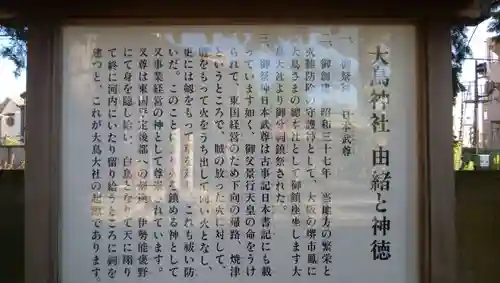 大鳥神社 由緒と神徳
一、御祭神 日本武尊
二、御創建 昭和三十七年 当地方の繁栄と
火難防除の守護神として、大阪の堺市鳳に
大鳥さまの総本社として御鎮座ます大
鳥大社より御分祠鎮祭された。
三、御祭神日本武尊は古事記日本書記にも載
っています如く、御父景行天皇の命をうけ
られて、東国経営のため下向の帰路、焼津
というところで、賊の放った火に対して、
をもって火をうち出して向い火となし、
更には剣をもって草を これも祓い防
いだ。このことより火を鎮める神として
又事業経営の神として尊崇されています。
又尊は東国平定後都への帰途、伊勢能褒野
にて身を隠し給い、白鳥となりて天に翔り
て終に河内にいたり留り給うところに祠を
建つと、これが大鳥大社の起源であります。